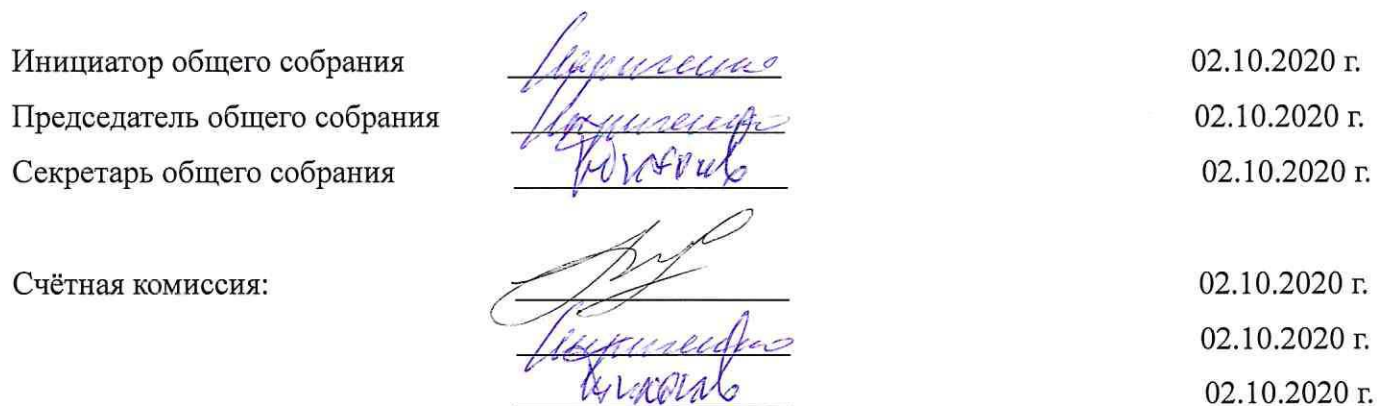 Инициатор общего собрания 02.10.2020 г.
Председатель общего собрания 02.10.2020 г.
Секретарь общего собрания 02.10.2020 г.
Счётная комиссия: 02.10.2020 г.
02.10.2020 г.
02.10.2020 г.